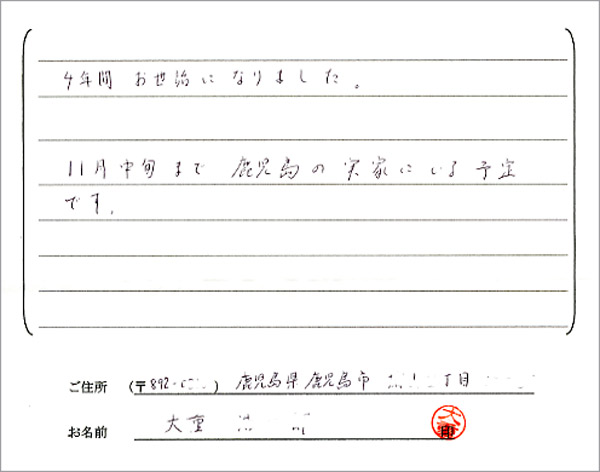 4年間 お世話になりました。
11月中旬まで 鹿児島の実家にいる予定
です。
ご住所 (〒892- ) 鹿児島県鹿児島市 丁目
お名前 大重 印